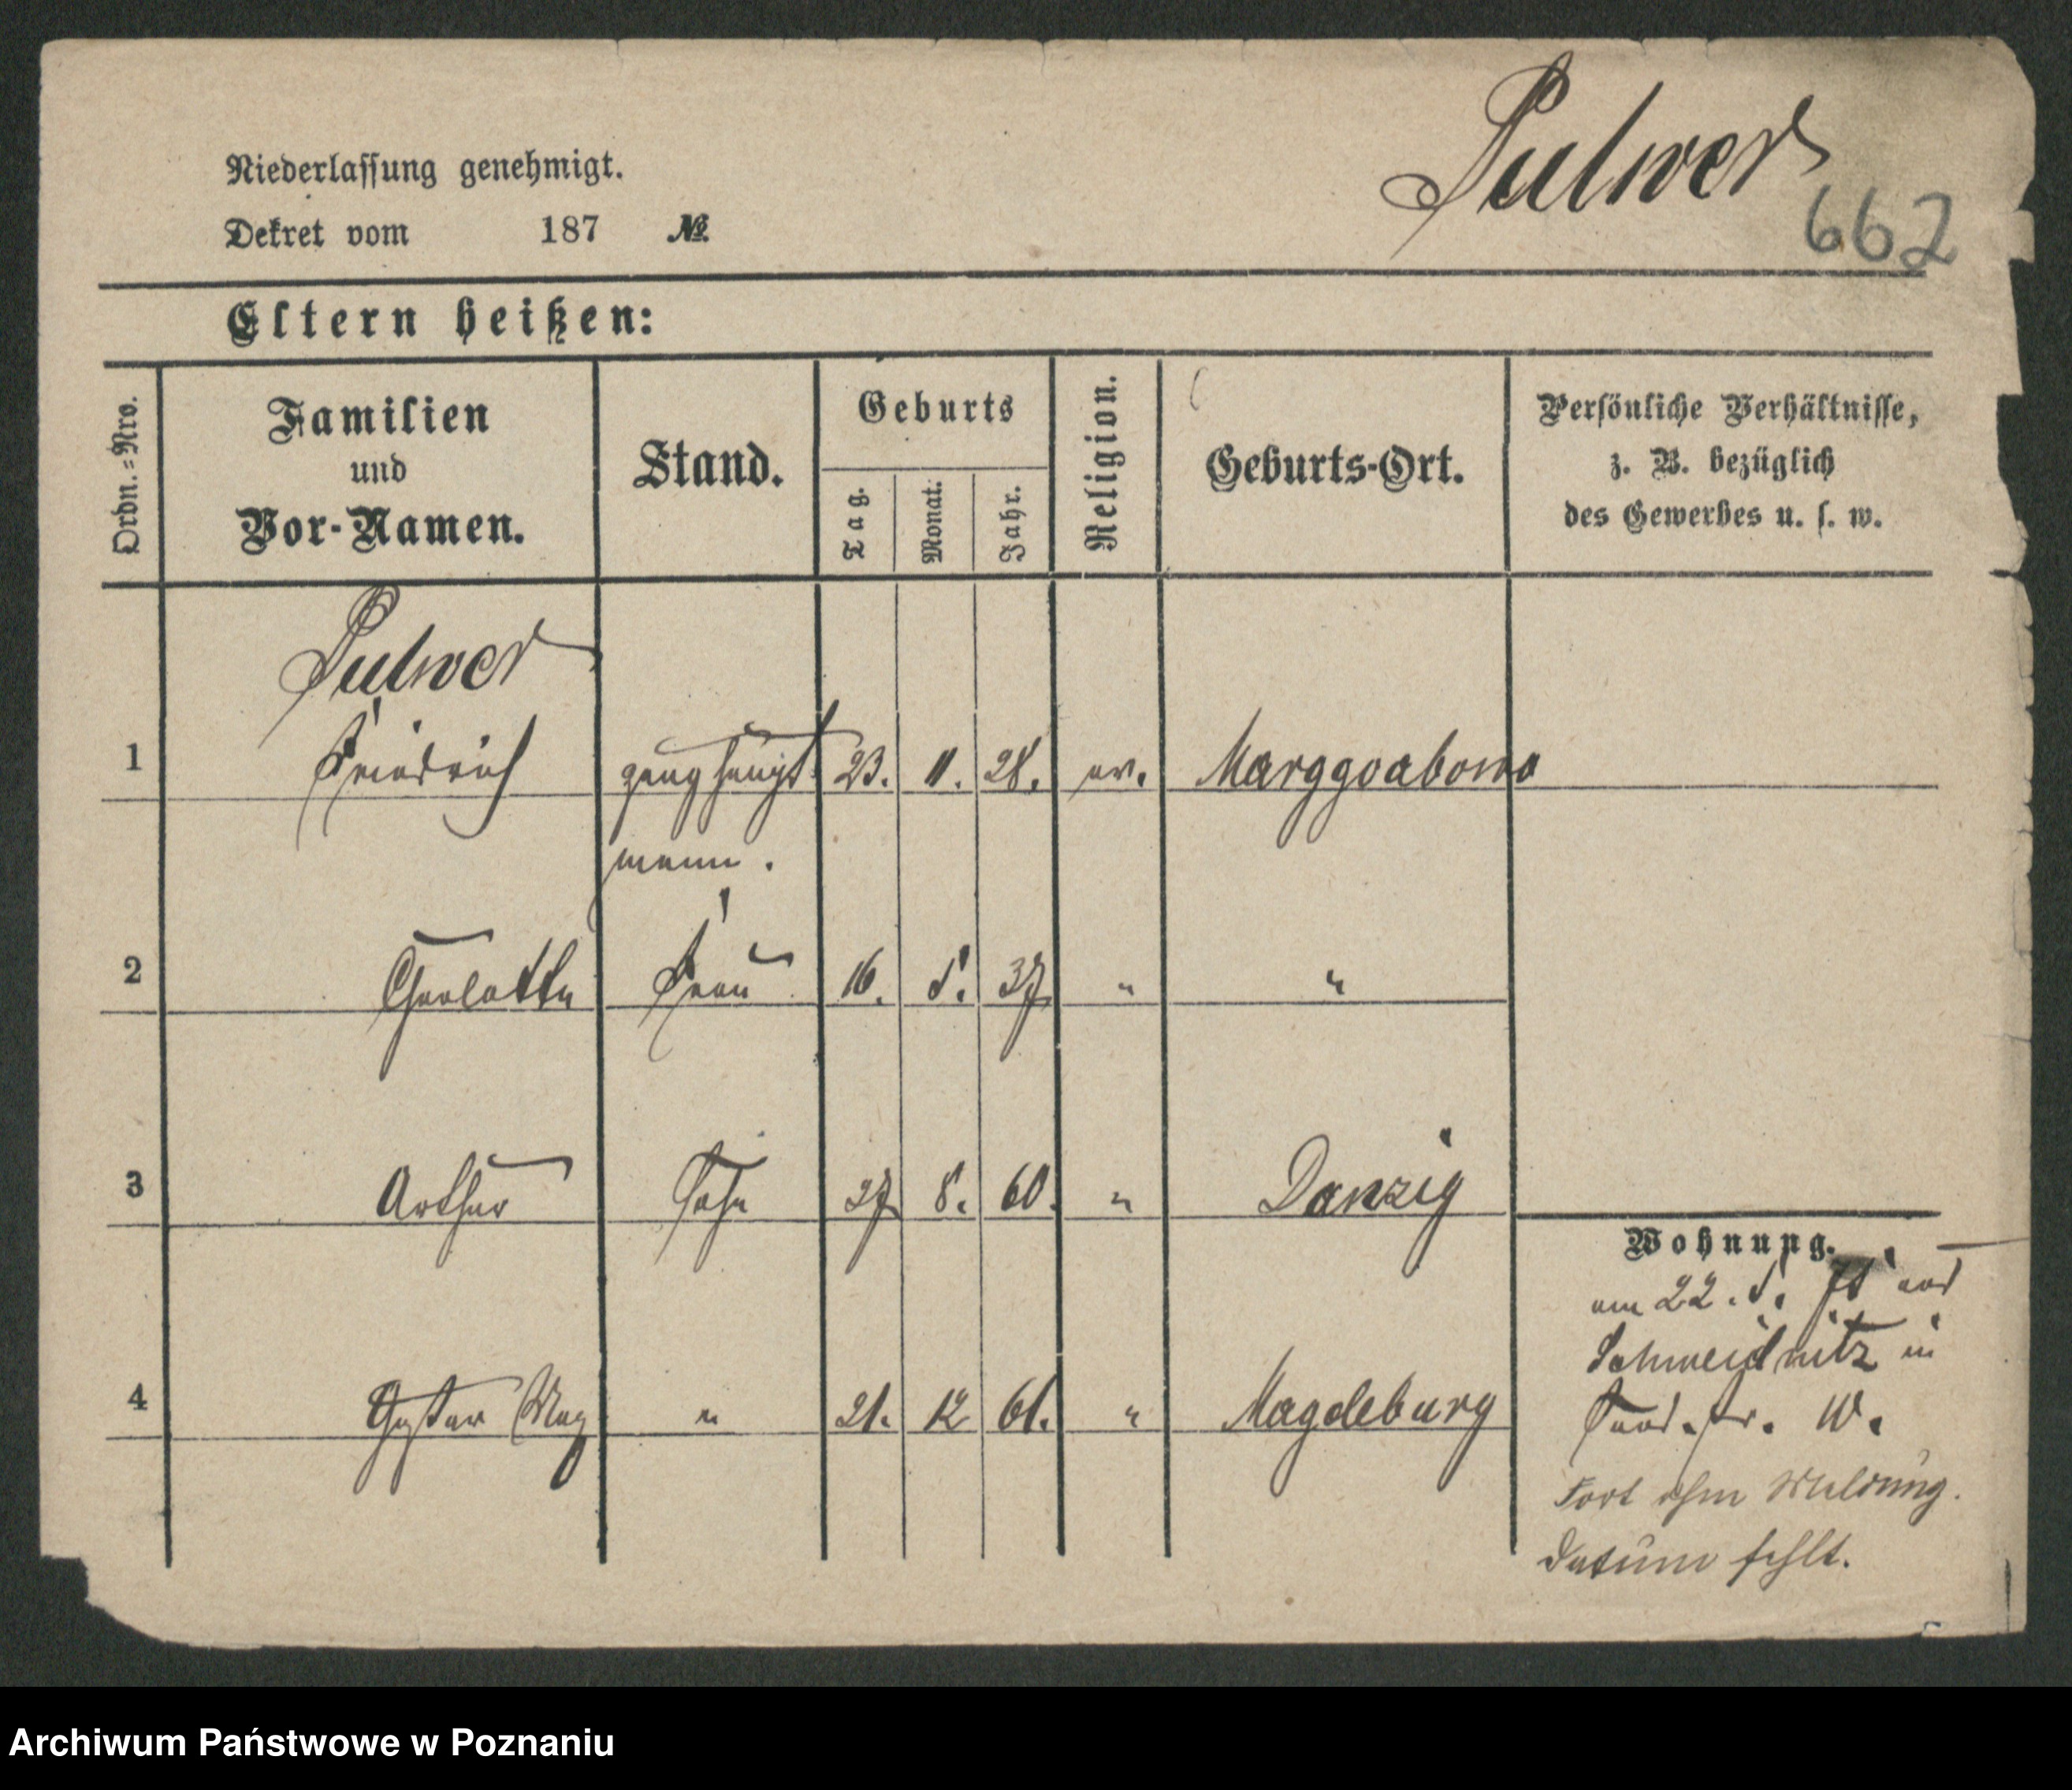 Pulwer
662
Niederlassung genehmigt.
Dekret vom 187 №
Eltern heißen:
Ordn.=Nro.
Familien
und
Vor-Namen.
Stand.
Geburts
Tag.
Monat.
Jahr.
Religion.
Geburts-Ort.
Persönliche Verhältnisse,
z. B. bezüglich
des Gewerbes u. s. w.
Pulwer
1 Friedrich 23. 11. 28. ev. Marggrabowa
mann.
2 Charlotte Frau 16. 37 " "
3 Arthur Sohn 27 8. 60. " Danzig
4 Gustav " 21. 12 61. " Magdeburg
Wohnung.
am 22.
Schweidnitz in
W.
Fort ohne Meldung.
Datum fehlt.
Archiwum Państwowe w Poznaniu